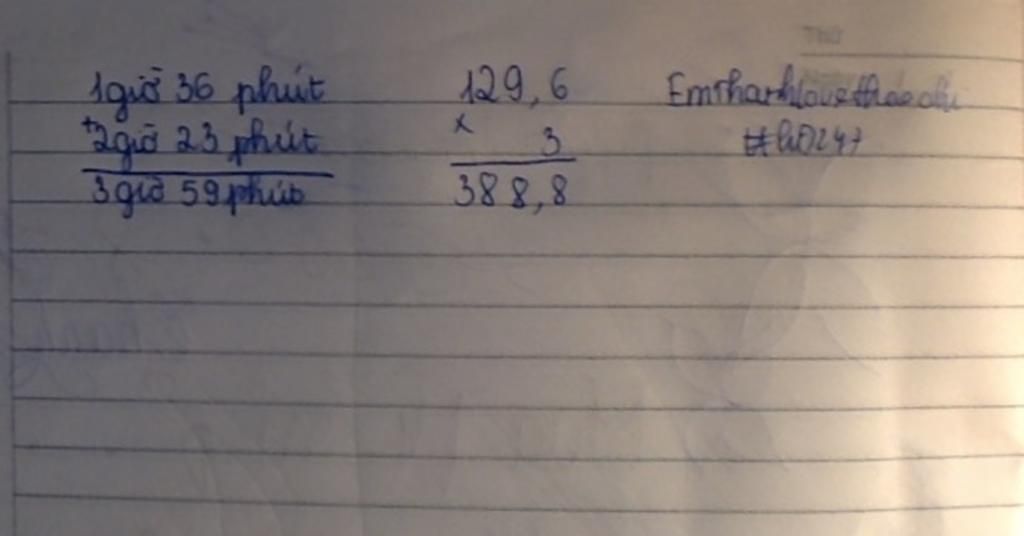 1giờ 36 phút
+2giờ 23 phút
3giờ 59 phút
129,6
x 3
388,8